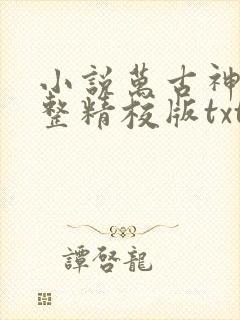 小說萬古神
整精校版txt
譚啓龍